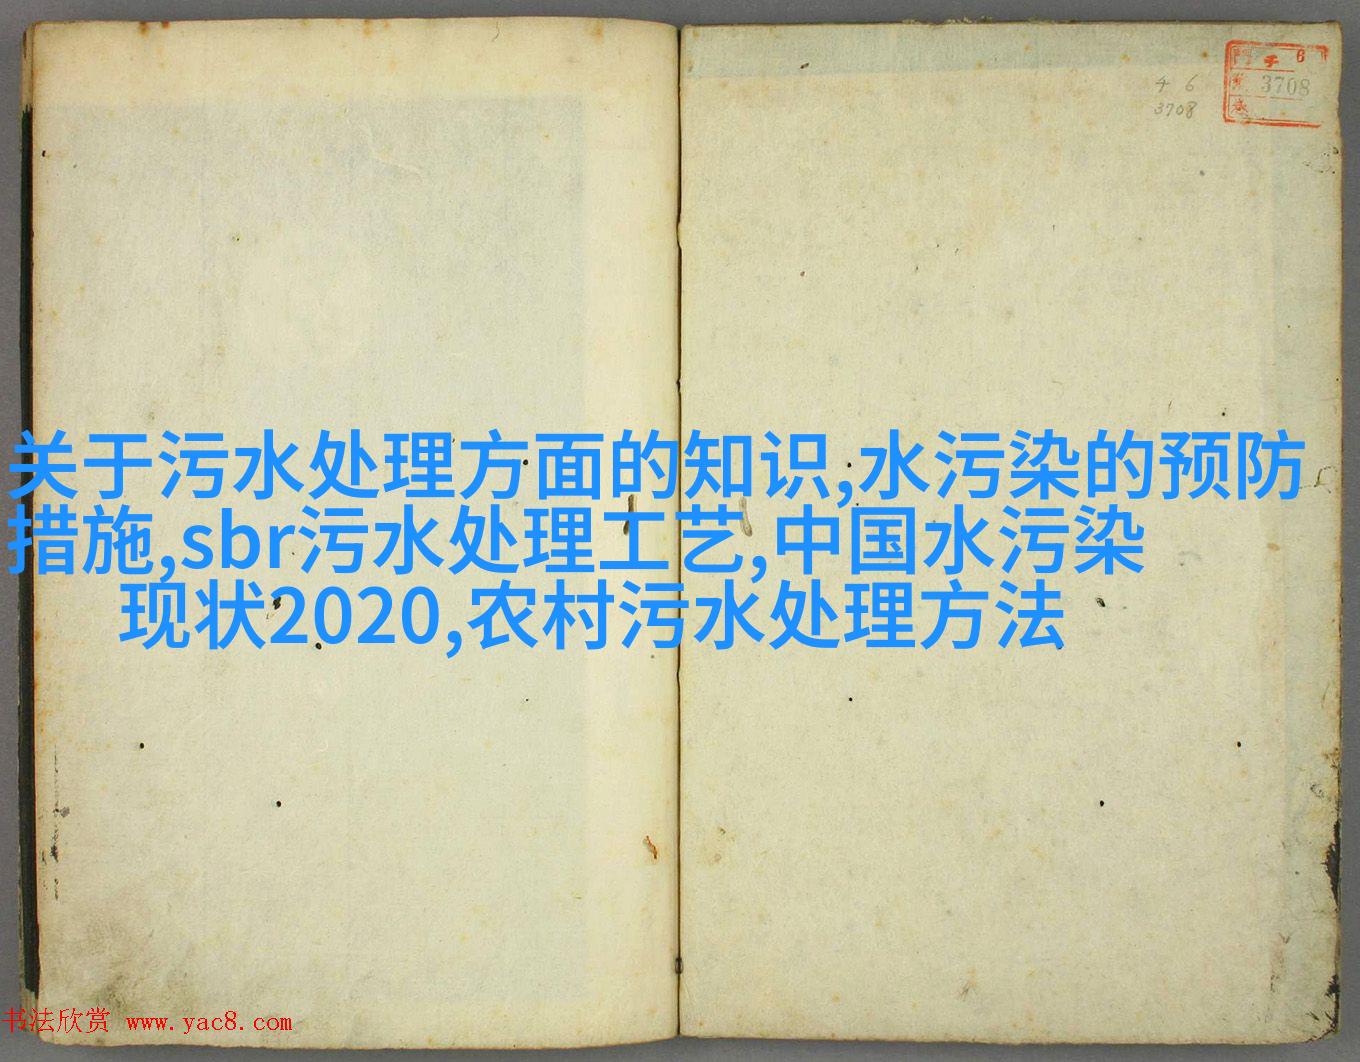 4 6
3708
6
3708
关于污水处理方面的知识,水污染的预防
措施,sbr污水处理工艺,中国水污染
现状2020,农村污水处理方法
书法欣赏 www.yac8.com